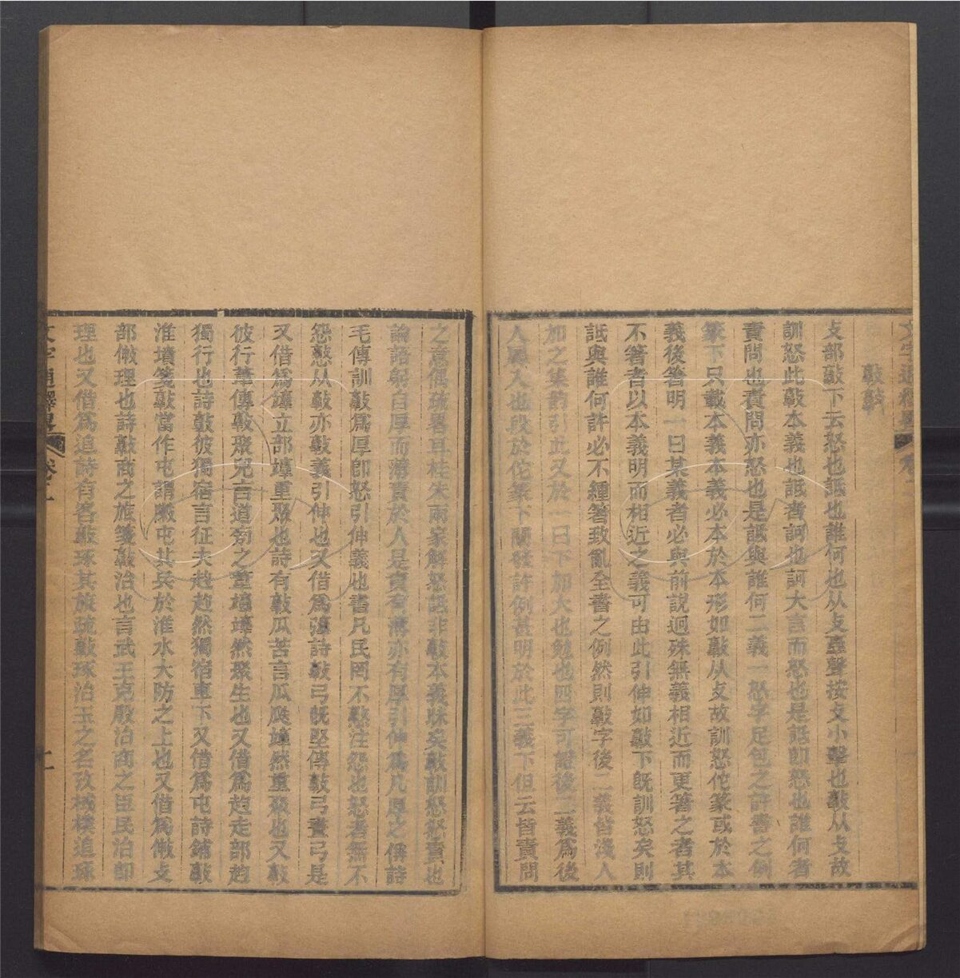 攴部敦下云怒也詆也誰何也从攴𦎧聲按攴小擊也敦从攴故
訓怒此敦本義也詆者訶也訶大言而怒也是詆卽怒也誰何者
責問也責問亦怒也是詆與誰何二義一怒字足包之許書之例
篆下只載本義本義必本於本形如敦从攴故訓怒佗篆或於本
義後箸明一曰某義者必與前說迥殊無義相近而更箸之者其
不箸者以本義明而相近之義可由此引伸如敦下旣訓怒矣則
詆與誰何許必不緟箸致亂全書之例然則敦字後二義皆淺人
加之集韵引此又於一曰下加大也勉也四字可證後二義爲後
人羼人也段於佗篆下闡發許例甚明於此三義下但云皆責問
之意偶疏畧耳桂朱兩家解怒詆非敦本義昧矣敦訓怒怒責也
論語躬自厚而薄責於人是責有薄亦有厚引伸爲凡厚之偁詩
毛傳訓敦爲厚卽怒引伸義也書凡民罔不憝注怨也怒者無不
怨憝从敦亦敦義引伸也又借爲彈詩敦弓旣堅傳敦弓畫弓是
又借爲𥫔立部𥫔重聚也詩有敦瓜苦言瓜瓞𥫔然重聚也又敦
彼行葦傳敦聚皃言道旁之葦𥫔𥫔然聚生也又借爲趙走部趙
獨行也詩敦彼獨宿言征夫趙趙然獨宿車下又借爲屯詩鋪敦
淮墳箋敦當作屯謂陳屯其兵於淮水大防之上也又借爲㪟攴
部㪟理也詩敦商之旅箋敦治也言武王克殷治商之臣民治卽
理也又借爲追詩有客敦琢其旅疏敦琢治玉之名攷棫樸追琢